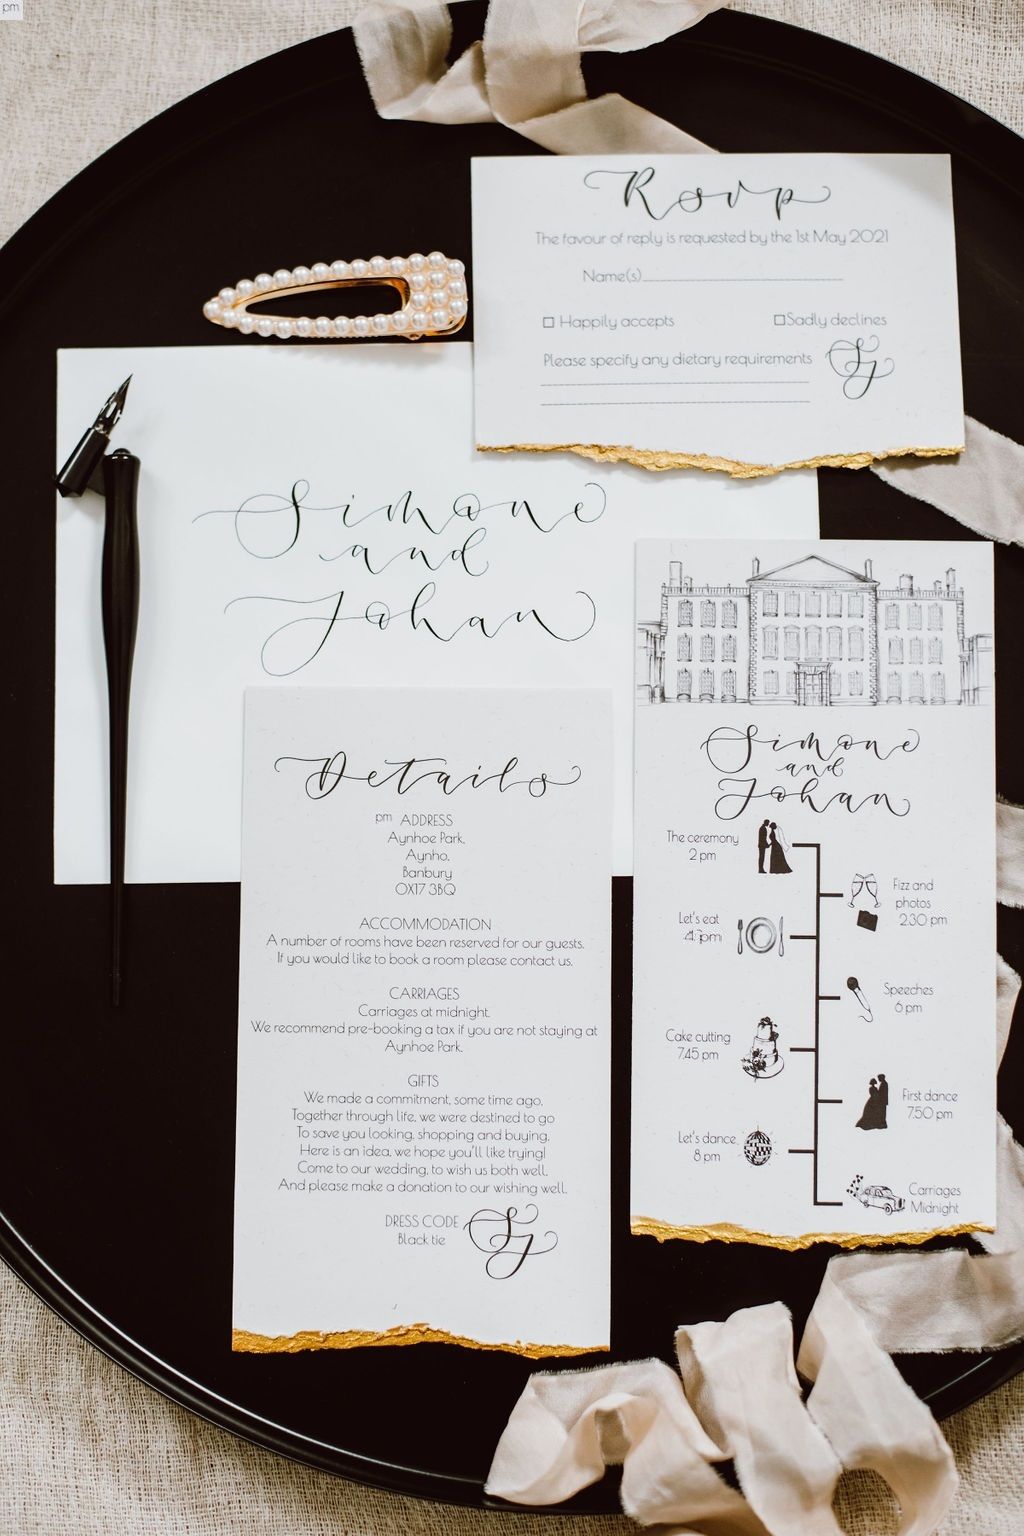 pm
Rsvp
The favour of reply is requested by the 1st May 2021
Name(s)
Happily accepts
Sadly declines
Please specify any dietary requirements
SJ
Simone
and
Johan
Details
pm ADDRESS
Aynhoe Park,
Aynho,
Banbury
OX17 3BQ
ACCOMMODATION
A number of rooms have been reserved for our guests.
If you would like to book a room please contact us.
CARRIAGES
Carriages at midnight.
We recommend pre-booking a tax if you are not staying at
Aynhoe Park.
GIFTS
We made a commitment, some time ago,
Together through life, we were destined to go
To save you looking, shopping and buying,
Here is an idea, we hope you'll like trying!
Come to our wedding, to wish us both well,
And please make a donation to our wishing well.
DRESS CODE
Black tie
SJ
Simone
and
Johan
The ceremony
2 pm
Fizz and
photos
2.30 pm
Let's eat
pm
Speeches
6 pm
Cake cutting
7.45 pm
First dance
7.50 pm
Let's dance
8 pm
Carriages
Midnight